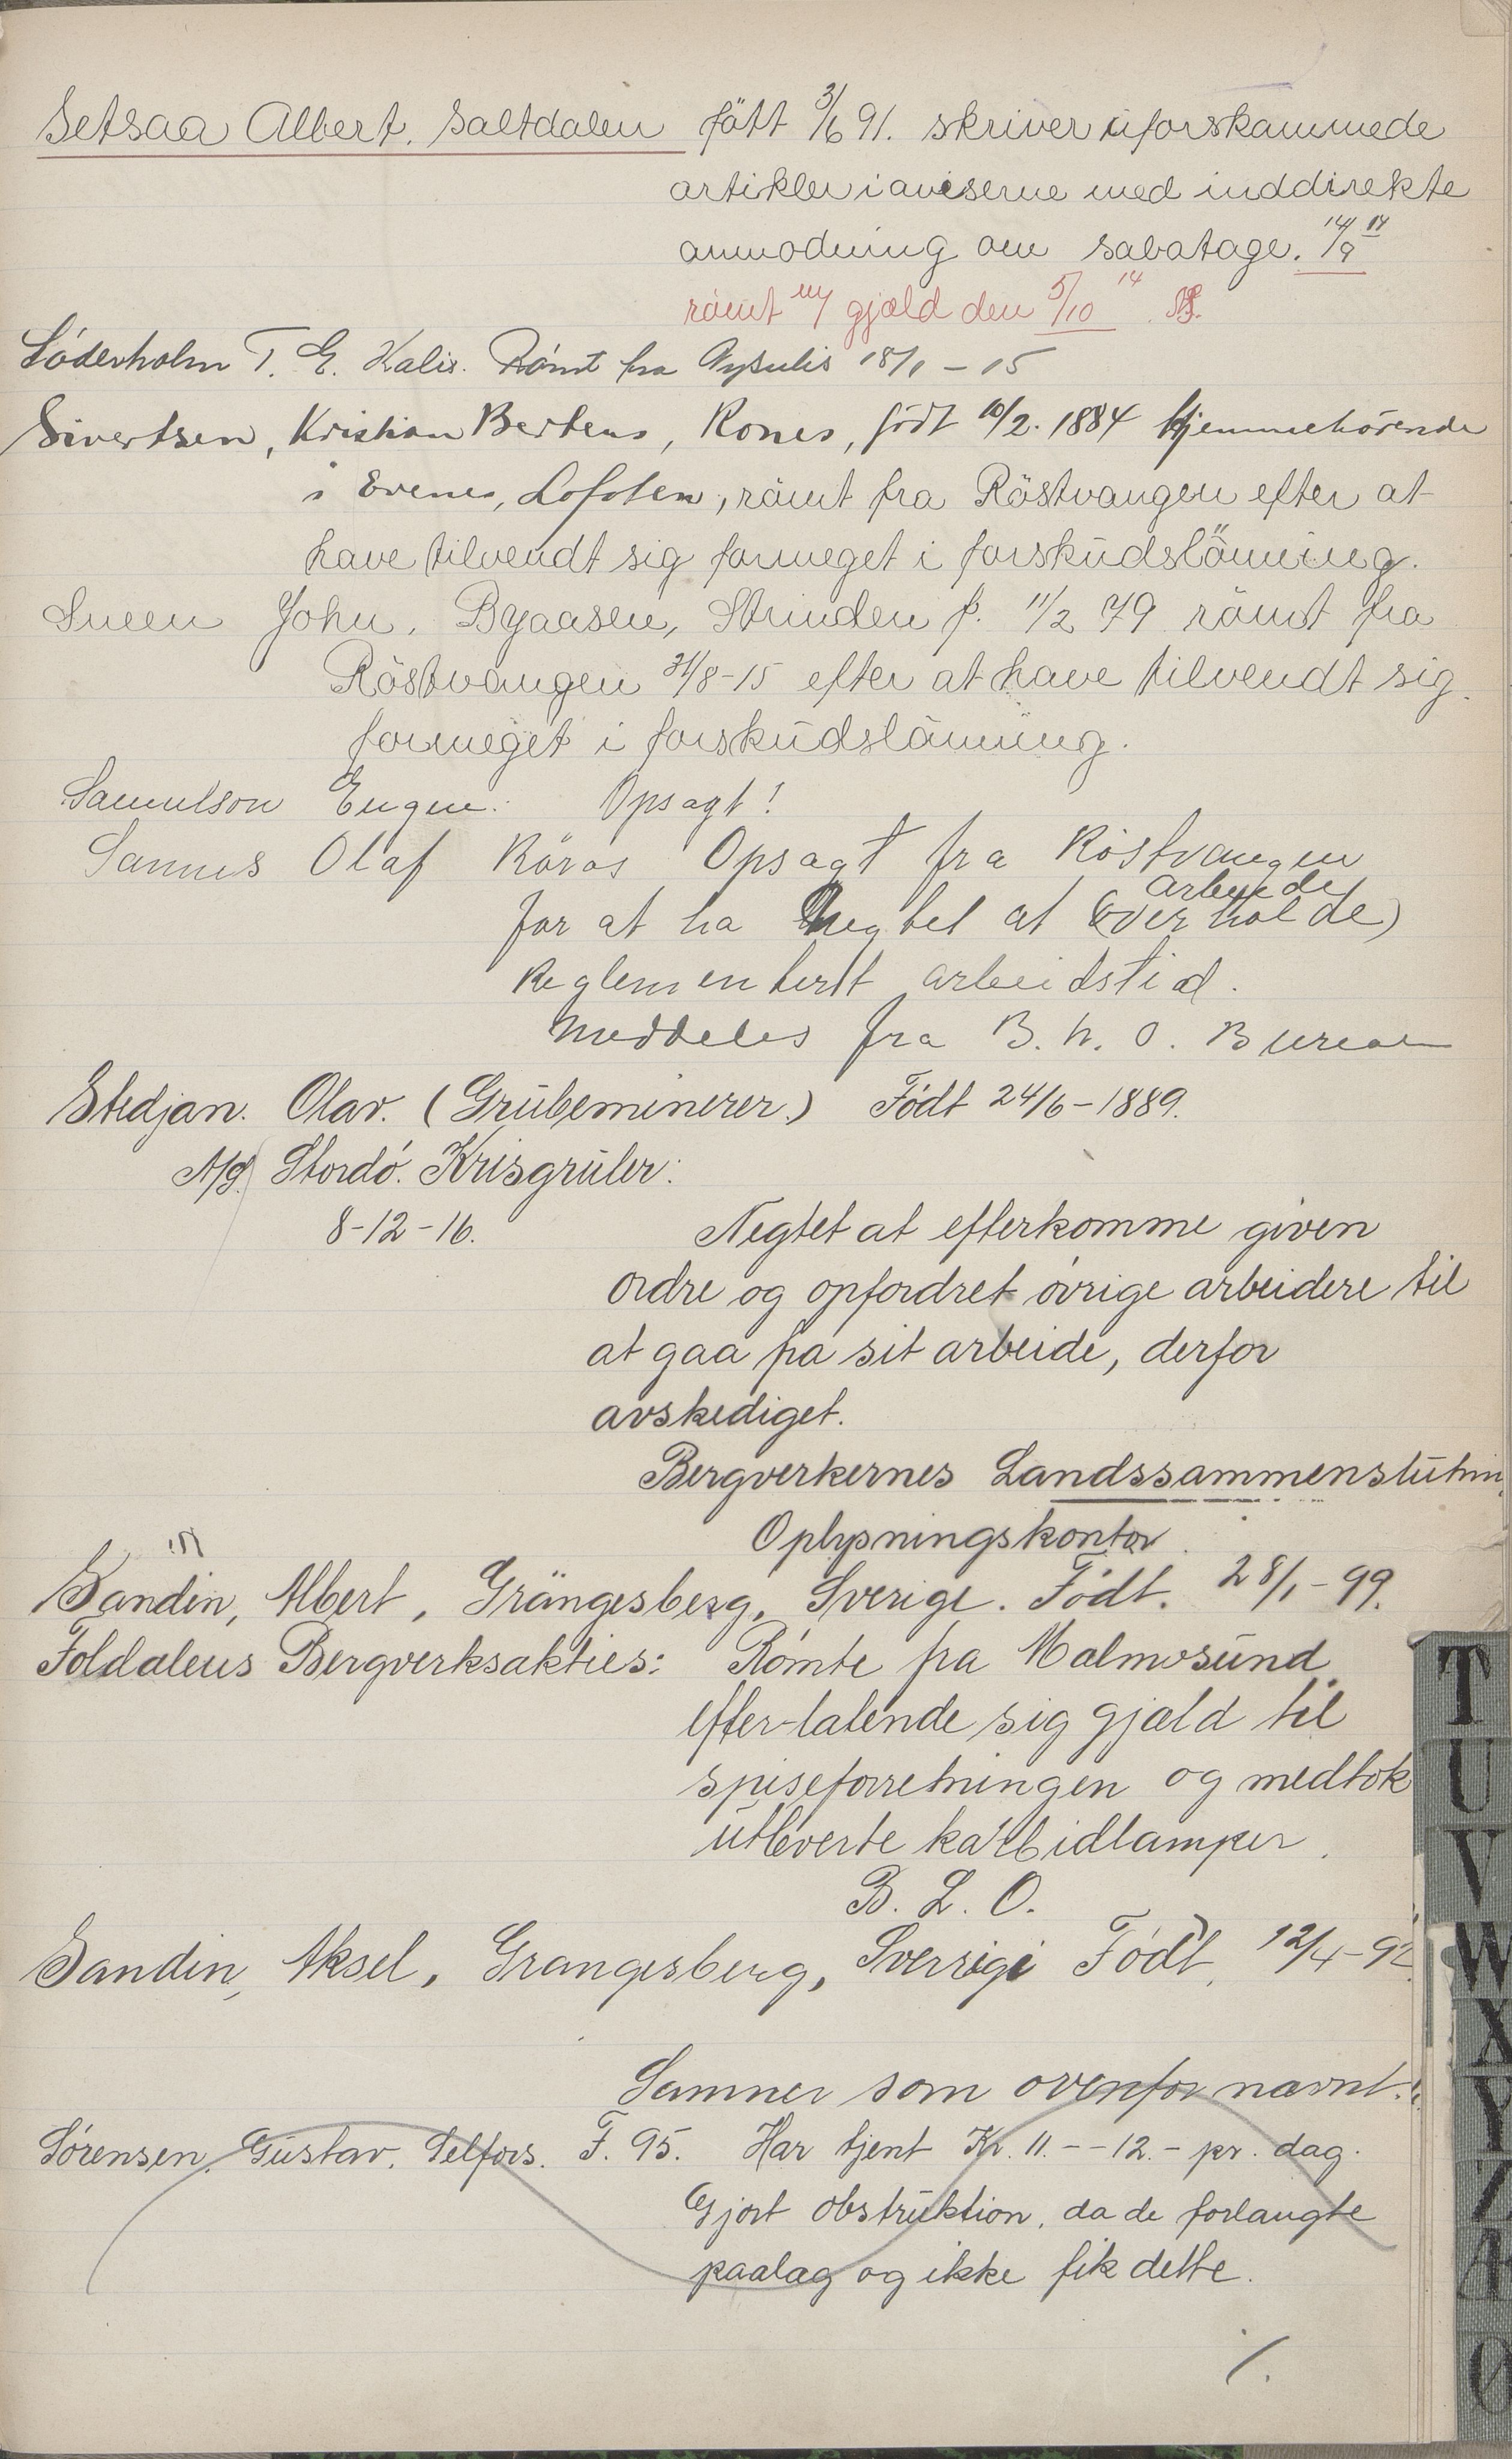 Setsaa Albert. Saltdalen fött 3/6 91. skriver uforskammede
artikler i aviserne med inddirekte
anmodning om sabotage. 14/9 14
römt m/ gjæld den 5/10 14
Söderholm T. E. Kalix. Römt fra 18/1 - 15
Sivertsen, Kristian Bertens, Rones, födt 10/2. 1884 hjemmehörende
i Evenes, Lofoten, römt fra Röstvangen efter at
have tilvendt sig formeget i forskudslönning.
Sneen John. Byaasen, Strinden f. 11/2 79 römt fra
Röstvangen 31/8-15 efter at have tilvendt sig
formeget i forskudslönning.
Samulson Eugen. Opsagt!
Sannes Olaf Röros Opsagt fra Röstvangen
arbeide
for at ha negtet at (overholde)
Reglementert arbeidstid.
meddeles fra B. L. O. Bureau
Stedjan. Olav. (Grubeminerer.) Födt 24/6-1889.
A/S. Stordö. Kisgruber:
8-12-16. Negtet at efterkomme given
ordre og opfordret övrige arbeidere til
at gaa fra sit arbeide, derfor
avskediget.
Bergverkernes Landssammenslutnin
Oplysningskontor.
Sandin, Albert, Grängesberg, Sverige. Födt. 28/1-99.
Foldalens Bergverksakties: Römte fra Malmosund
efterlatende sig gjæld til
spiseforretningen og medtok
utleverte karbidlamper.
B. L. O.
Sandin, Aksel, Grangesberg, Sverrige Födt. 12/4-92
Sammer som ovenfor nævnt.
Sørensen. Gustav. Selfors. F. 95. Har tjent Kr. 11.- - 12.- pr. dag.
Gjort obstruktion, da de forlangte
paalæg og ikke fik dette.
T
U
V
W
X
Y
Z
Æ
Ø